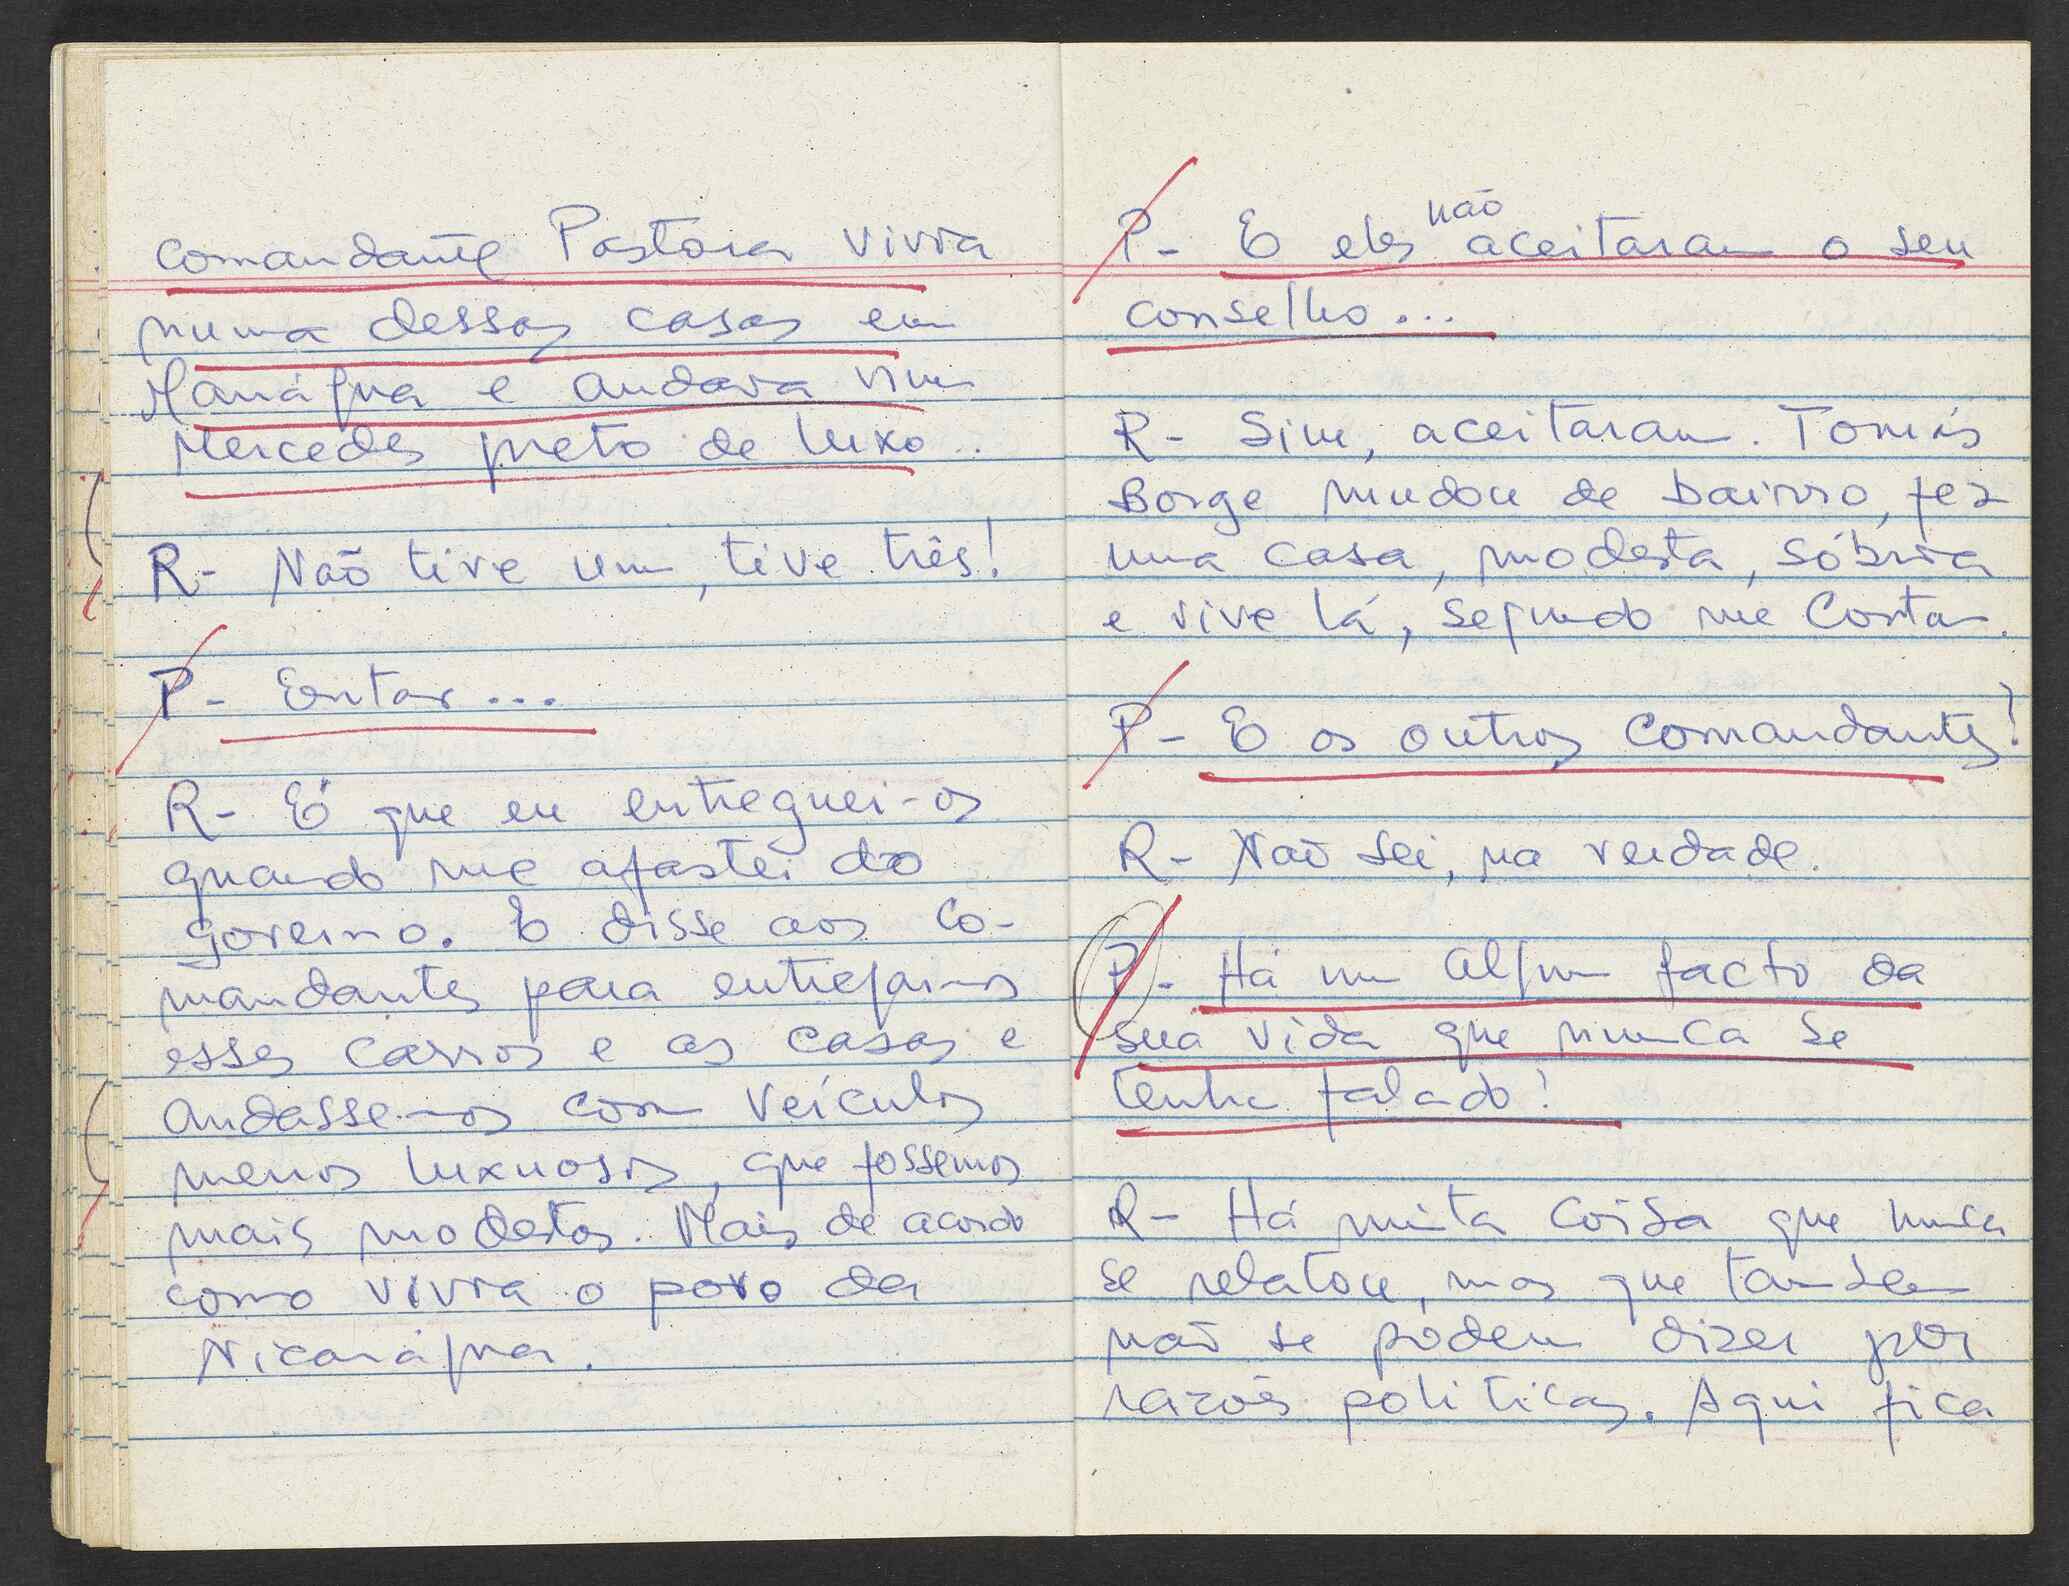 comandante Pastora vivia
numa dessas casas em
Manágua e andava num
Mercedes preto de luxo..
R- Não tive um, tive três!
P- Entao...
R- É que eu entreguei-os
quando me afastei do
governo. E disse aos co-
mandantes para entregarmos
esses carros e as casas e
andasse-mos com veículos
menos luxuosos, que fossemos
mais modestos. Mais de acordo
como vivia o povo da
Nicarágua.
não
P- E eles aceitaram o seu
conselho...
R- Sim, aceitaram. Tomás
Borge mudou de bairro, fez
uma casa, modesta, sóbria
e vive lá, segundo me contam.
P- E os outros comandantes?
R- Não sei, na verdade.
P- Há um algum facto da
sua vida que nunca se
tenha falado?
R- Há muita coisa que nunca
se relatou, mas que tambem
não se podem dizer por
razões politicas. Aqui fica